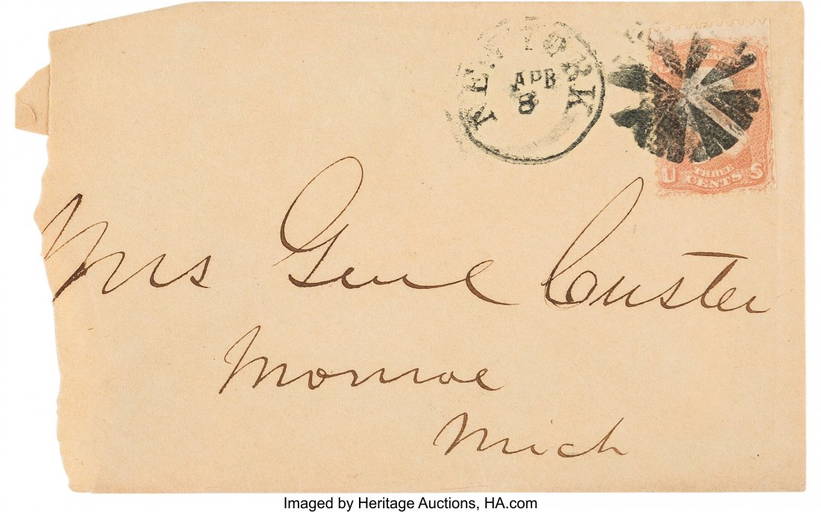 NEW YORK
APR
8
U THREE S
CENTS
Mrs Genl Custer
Monroe
Mich
Imaged by Heritage Auctions, HA.com